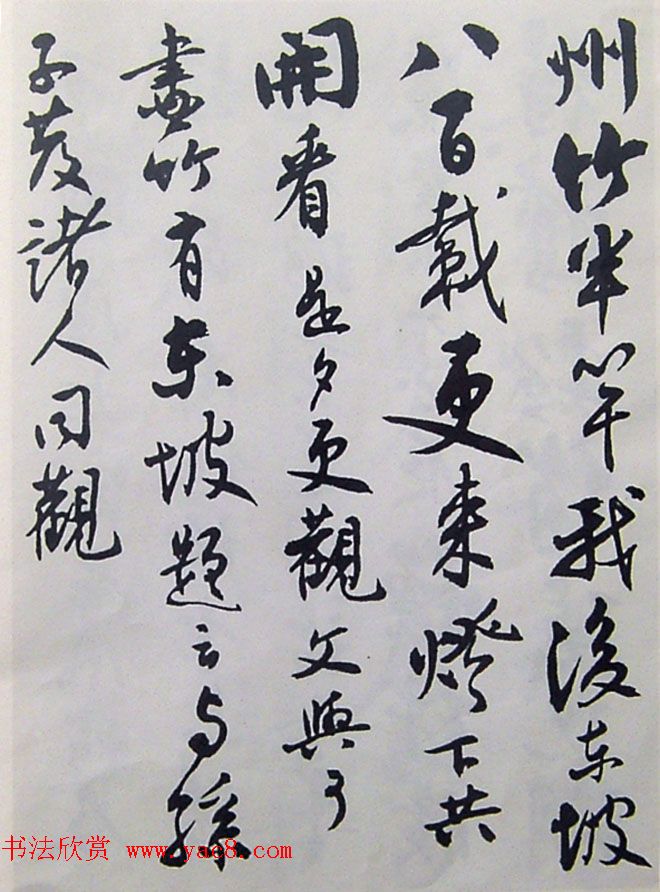 州竹半竿我後東坡
八百載更来燈下共
開看是夕更觀文與可
畫竹有東坡題云与孫
子發諸人同觀
书法欣赏 www.yac8.com